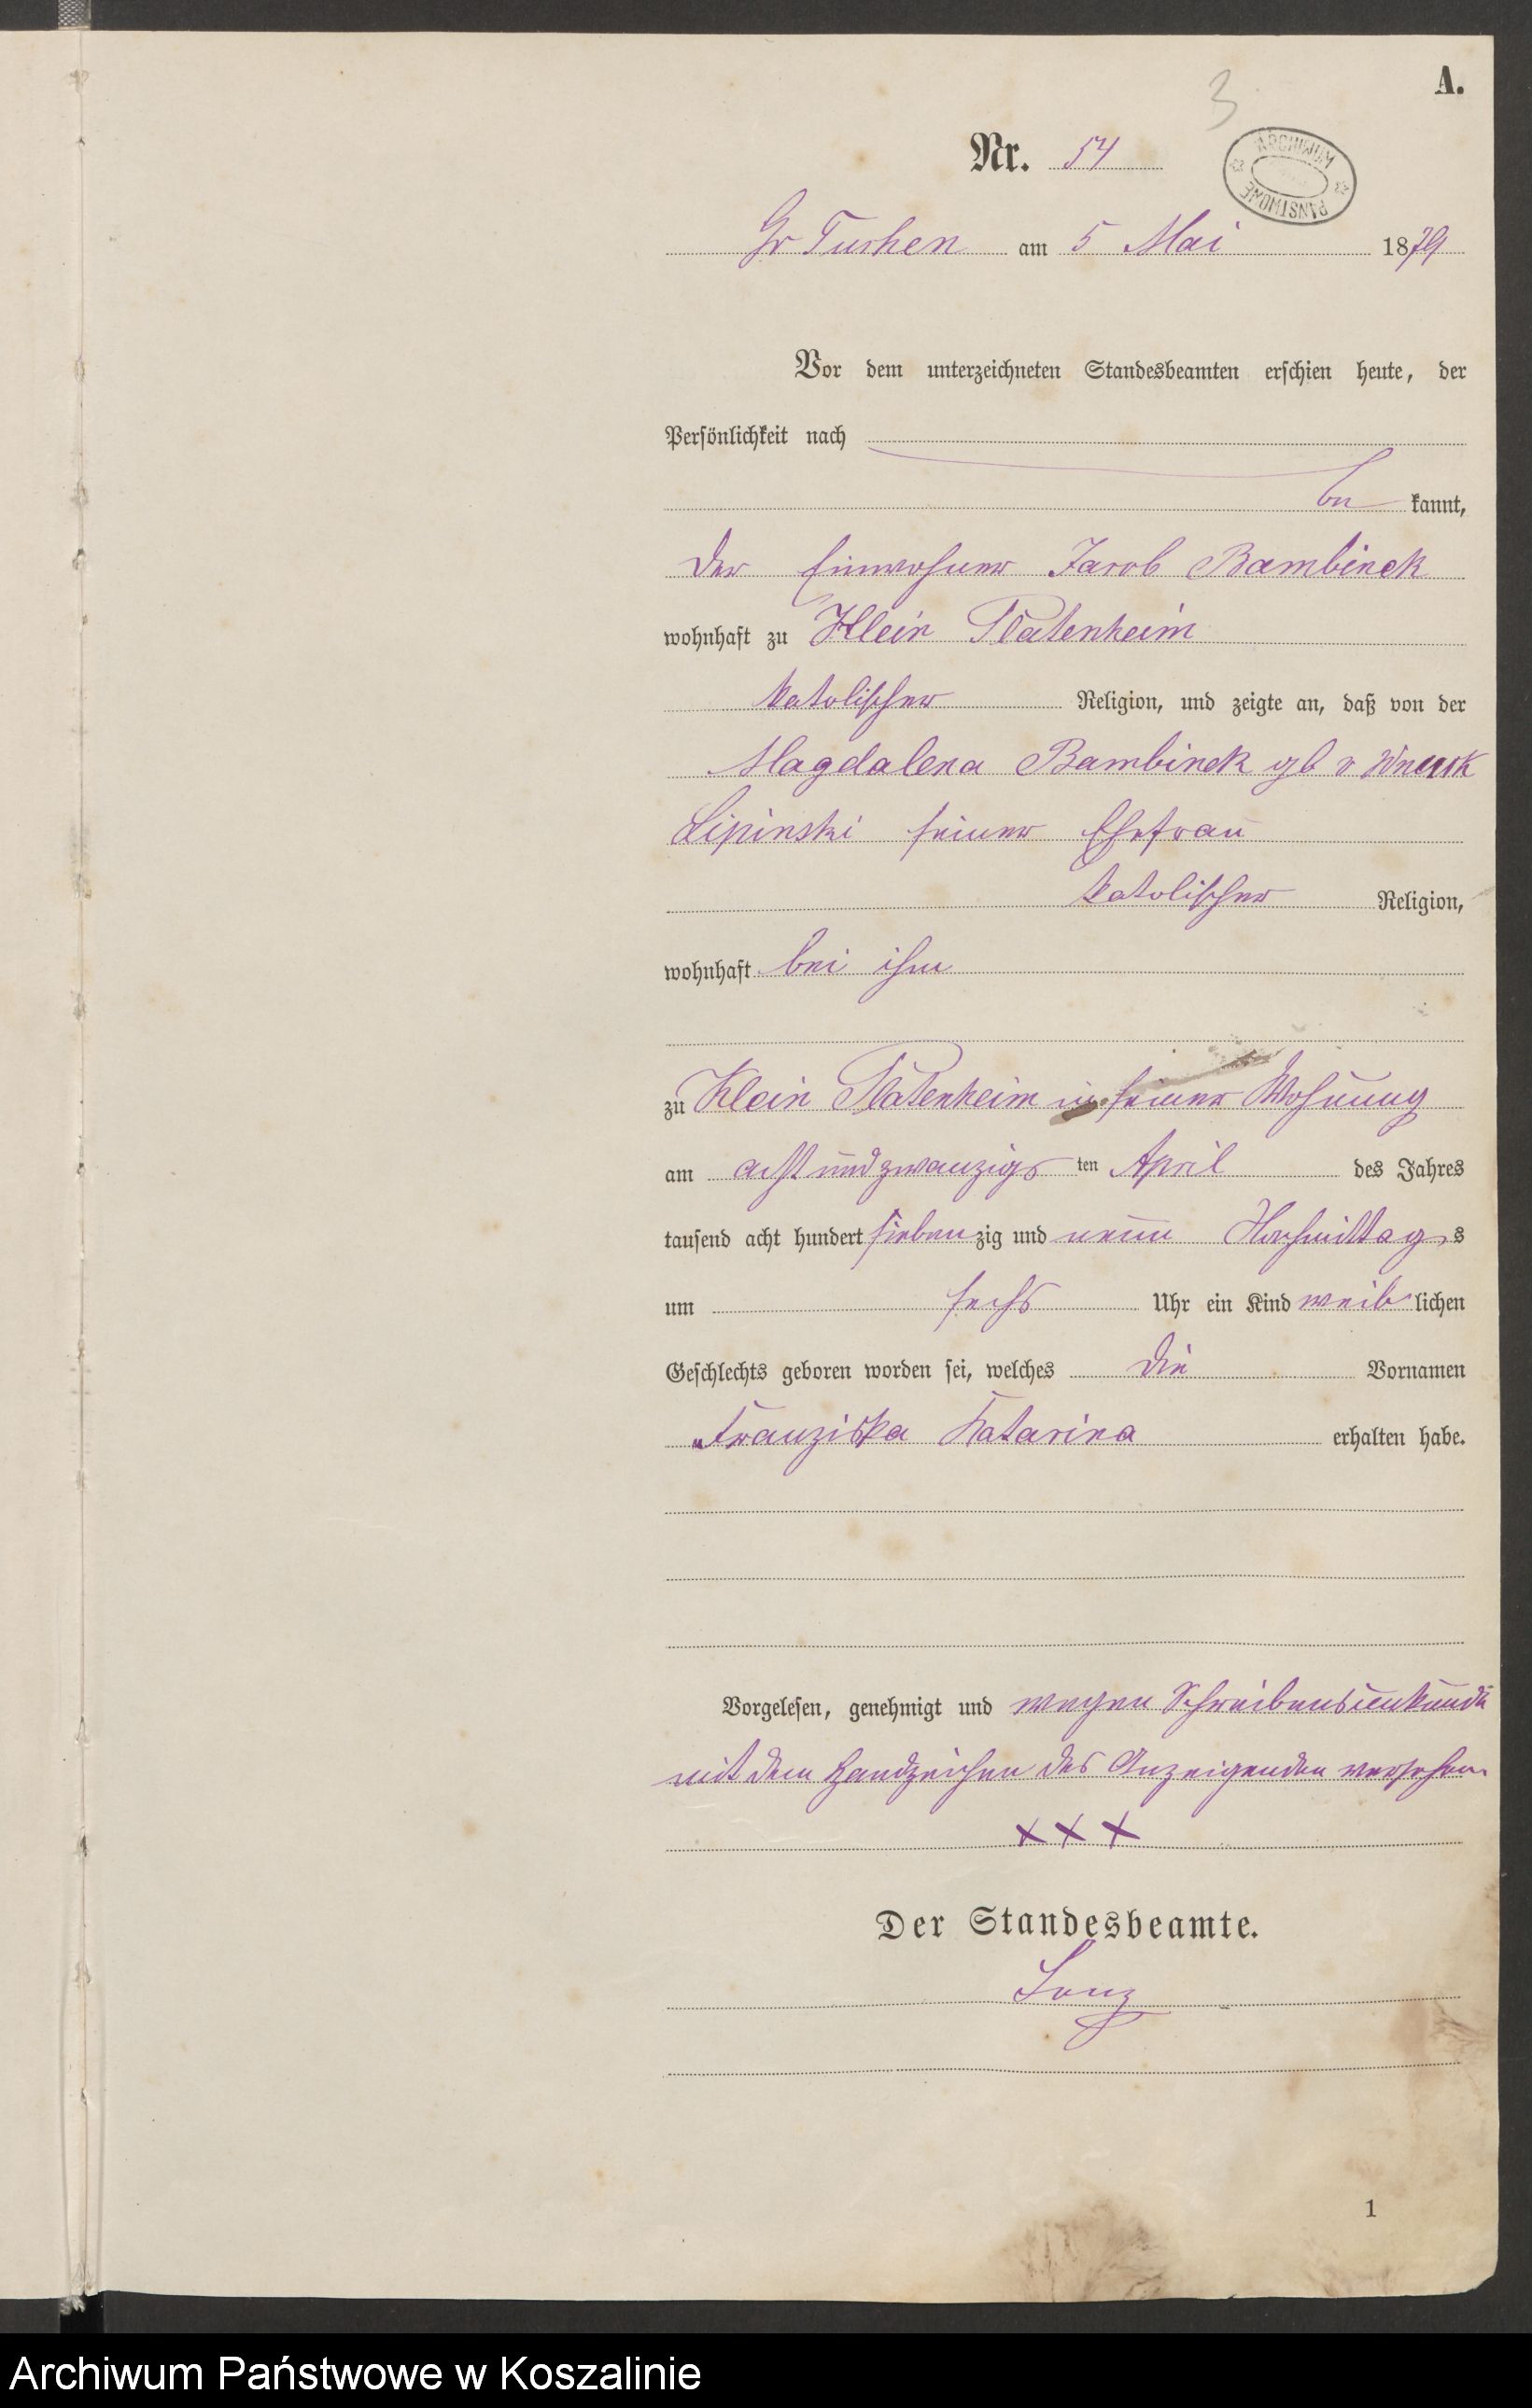 A.
3
Nr. 54
ARCHIWUM PAŃSTWOWE
Gr Tuchen am 5 Mai 1879
Vor dem unterzeichneten Standesbeamten erschien heute, der
Persönlichkeit nach
be kannt,
der Einwohner Jacob Bambinek
wohnhaft zu Klein Platenheim
katolischer Religion, und zeigte an, daß von der
Magdalena Bambinek gb v
Lipinski seiner Ehefrau
katolischer Religion,
wohnhaft bei ihm
zu Klein Platenheim in seiner Wohnung
am acht und zwanzigs ten April des Jahres
tausend acht hundert sieben zig und neun Nachmittag s
um sechs Uhr ein Kind weib lichen
Geschlechts geboren worden sei, welches die Vornamen
Franziska Katarina erhalten habe.
Vorgelesen, genehmigt und wegen Schreibensunkunde
mit dem Handzeichen des Anzeigenden versehen
XXX
Der Standesbeamte.
1
Archiwum Państwowe w Koszalinie